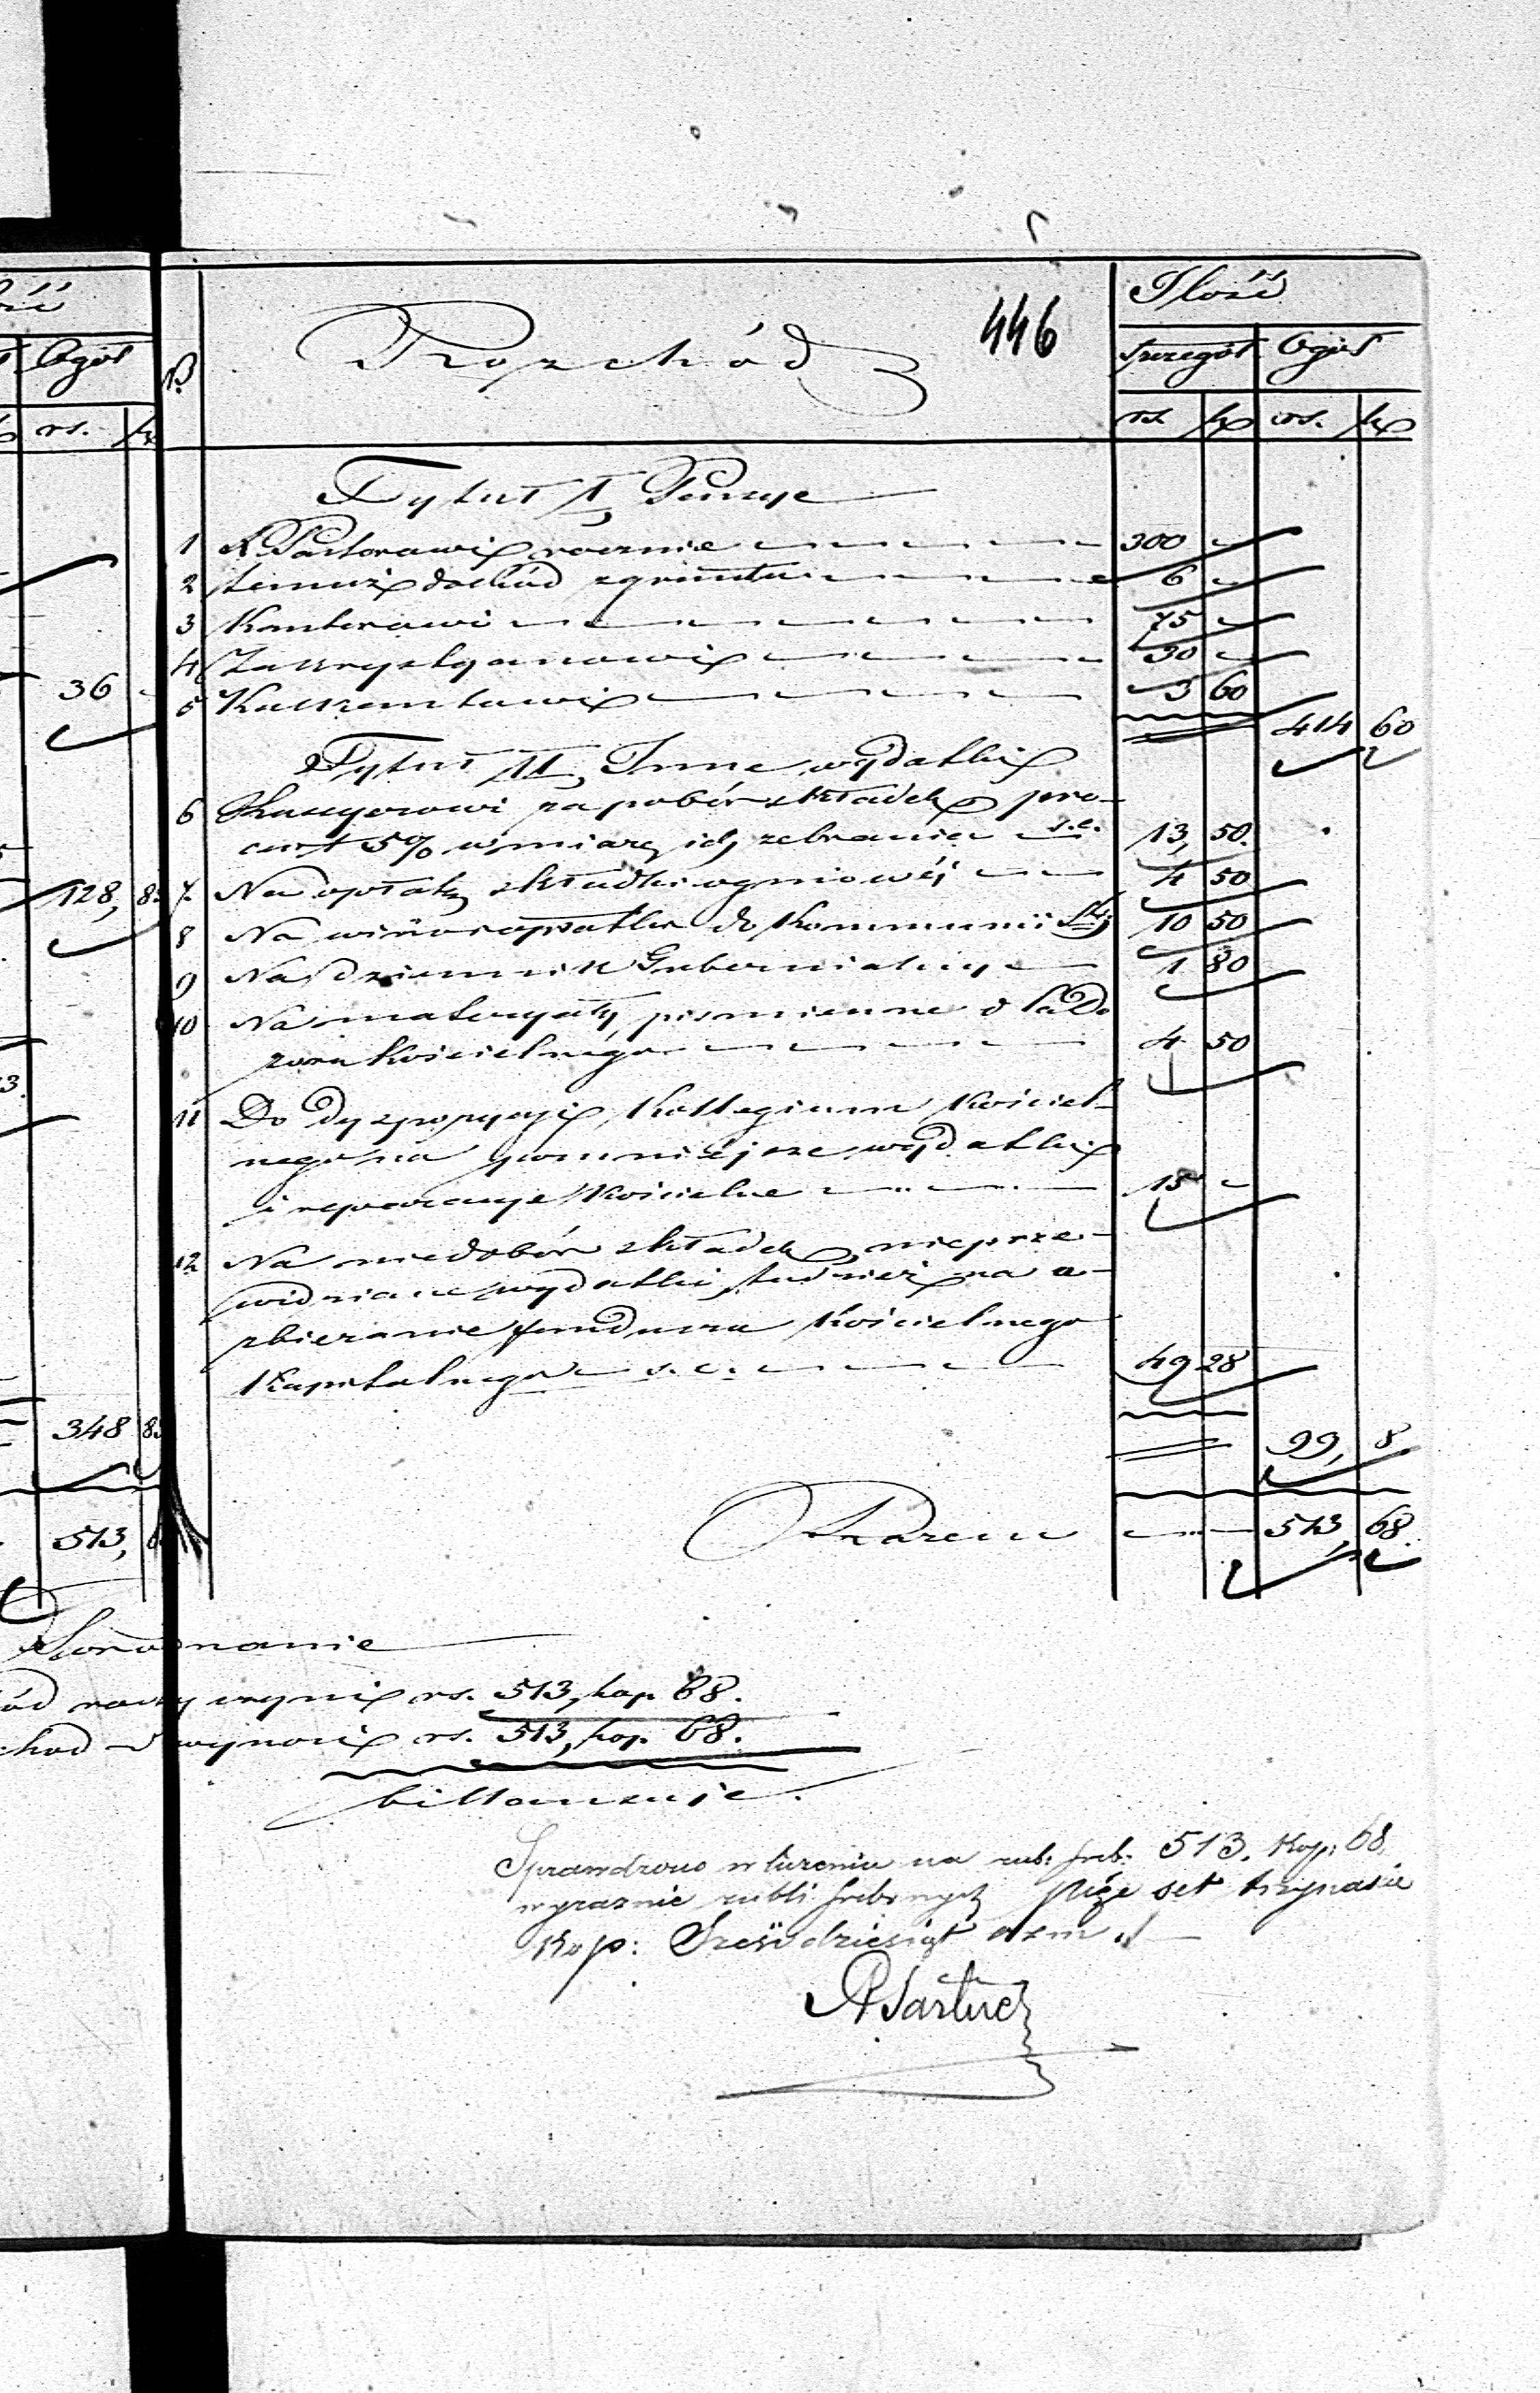 Ilość
446
Rozchód
№
Szczegół Ogół
rs. kp rs. kp
Ogół
rs. k
Tytuł I, Pensye
1 X. Pastorowi rocznie 300 -
2 temuż dochód z gruntu 6 -
3 Kantorowi 75 -
4 Zakrystyanowi 30 -
36 -
5 3 60
414 60
Tytuł II, Inne wydatki
6 Kassyerowi za pobór składek pro-
cent 5% w miarę ich zebrania s.e. 13, 50.
128, 8
7. Na opłatę składki ogniowéj 4 50
8 Na wino i opłatki do Kommunii Stéj 10 50
9 Na dziennik Gubernialny 1 80
10 Na materyały piśmienne dla Do
zoru Kościelnego 4 50
11 Do dyspozycyi Kollegium Kościel-
nego na pomniejsze wydatki
i reparacye Kościelne 15 -
12 Na niedobór składek, nieprze-
widziane wydatki, tudzież na u-
zbieranie funduszu Kościelnego
Kapitalnego s.e. 49 28
348 8
99, 8
Razem 513, 68.
513, 6
Porównanie
ód naczyni rs. 513, kop. 68.
chod wynosi rs. 513, kop. 68.
billansuje.
Sprawdzono w liczeniu na rub: sreb: 513. Kop: 68.
wyraznie rubli srebrnych pięc set trzynascie
Kop: Szesćdziesiąt osm